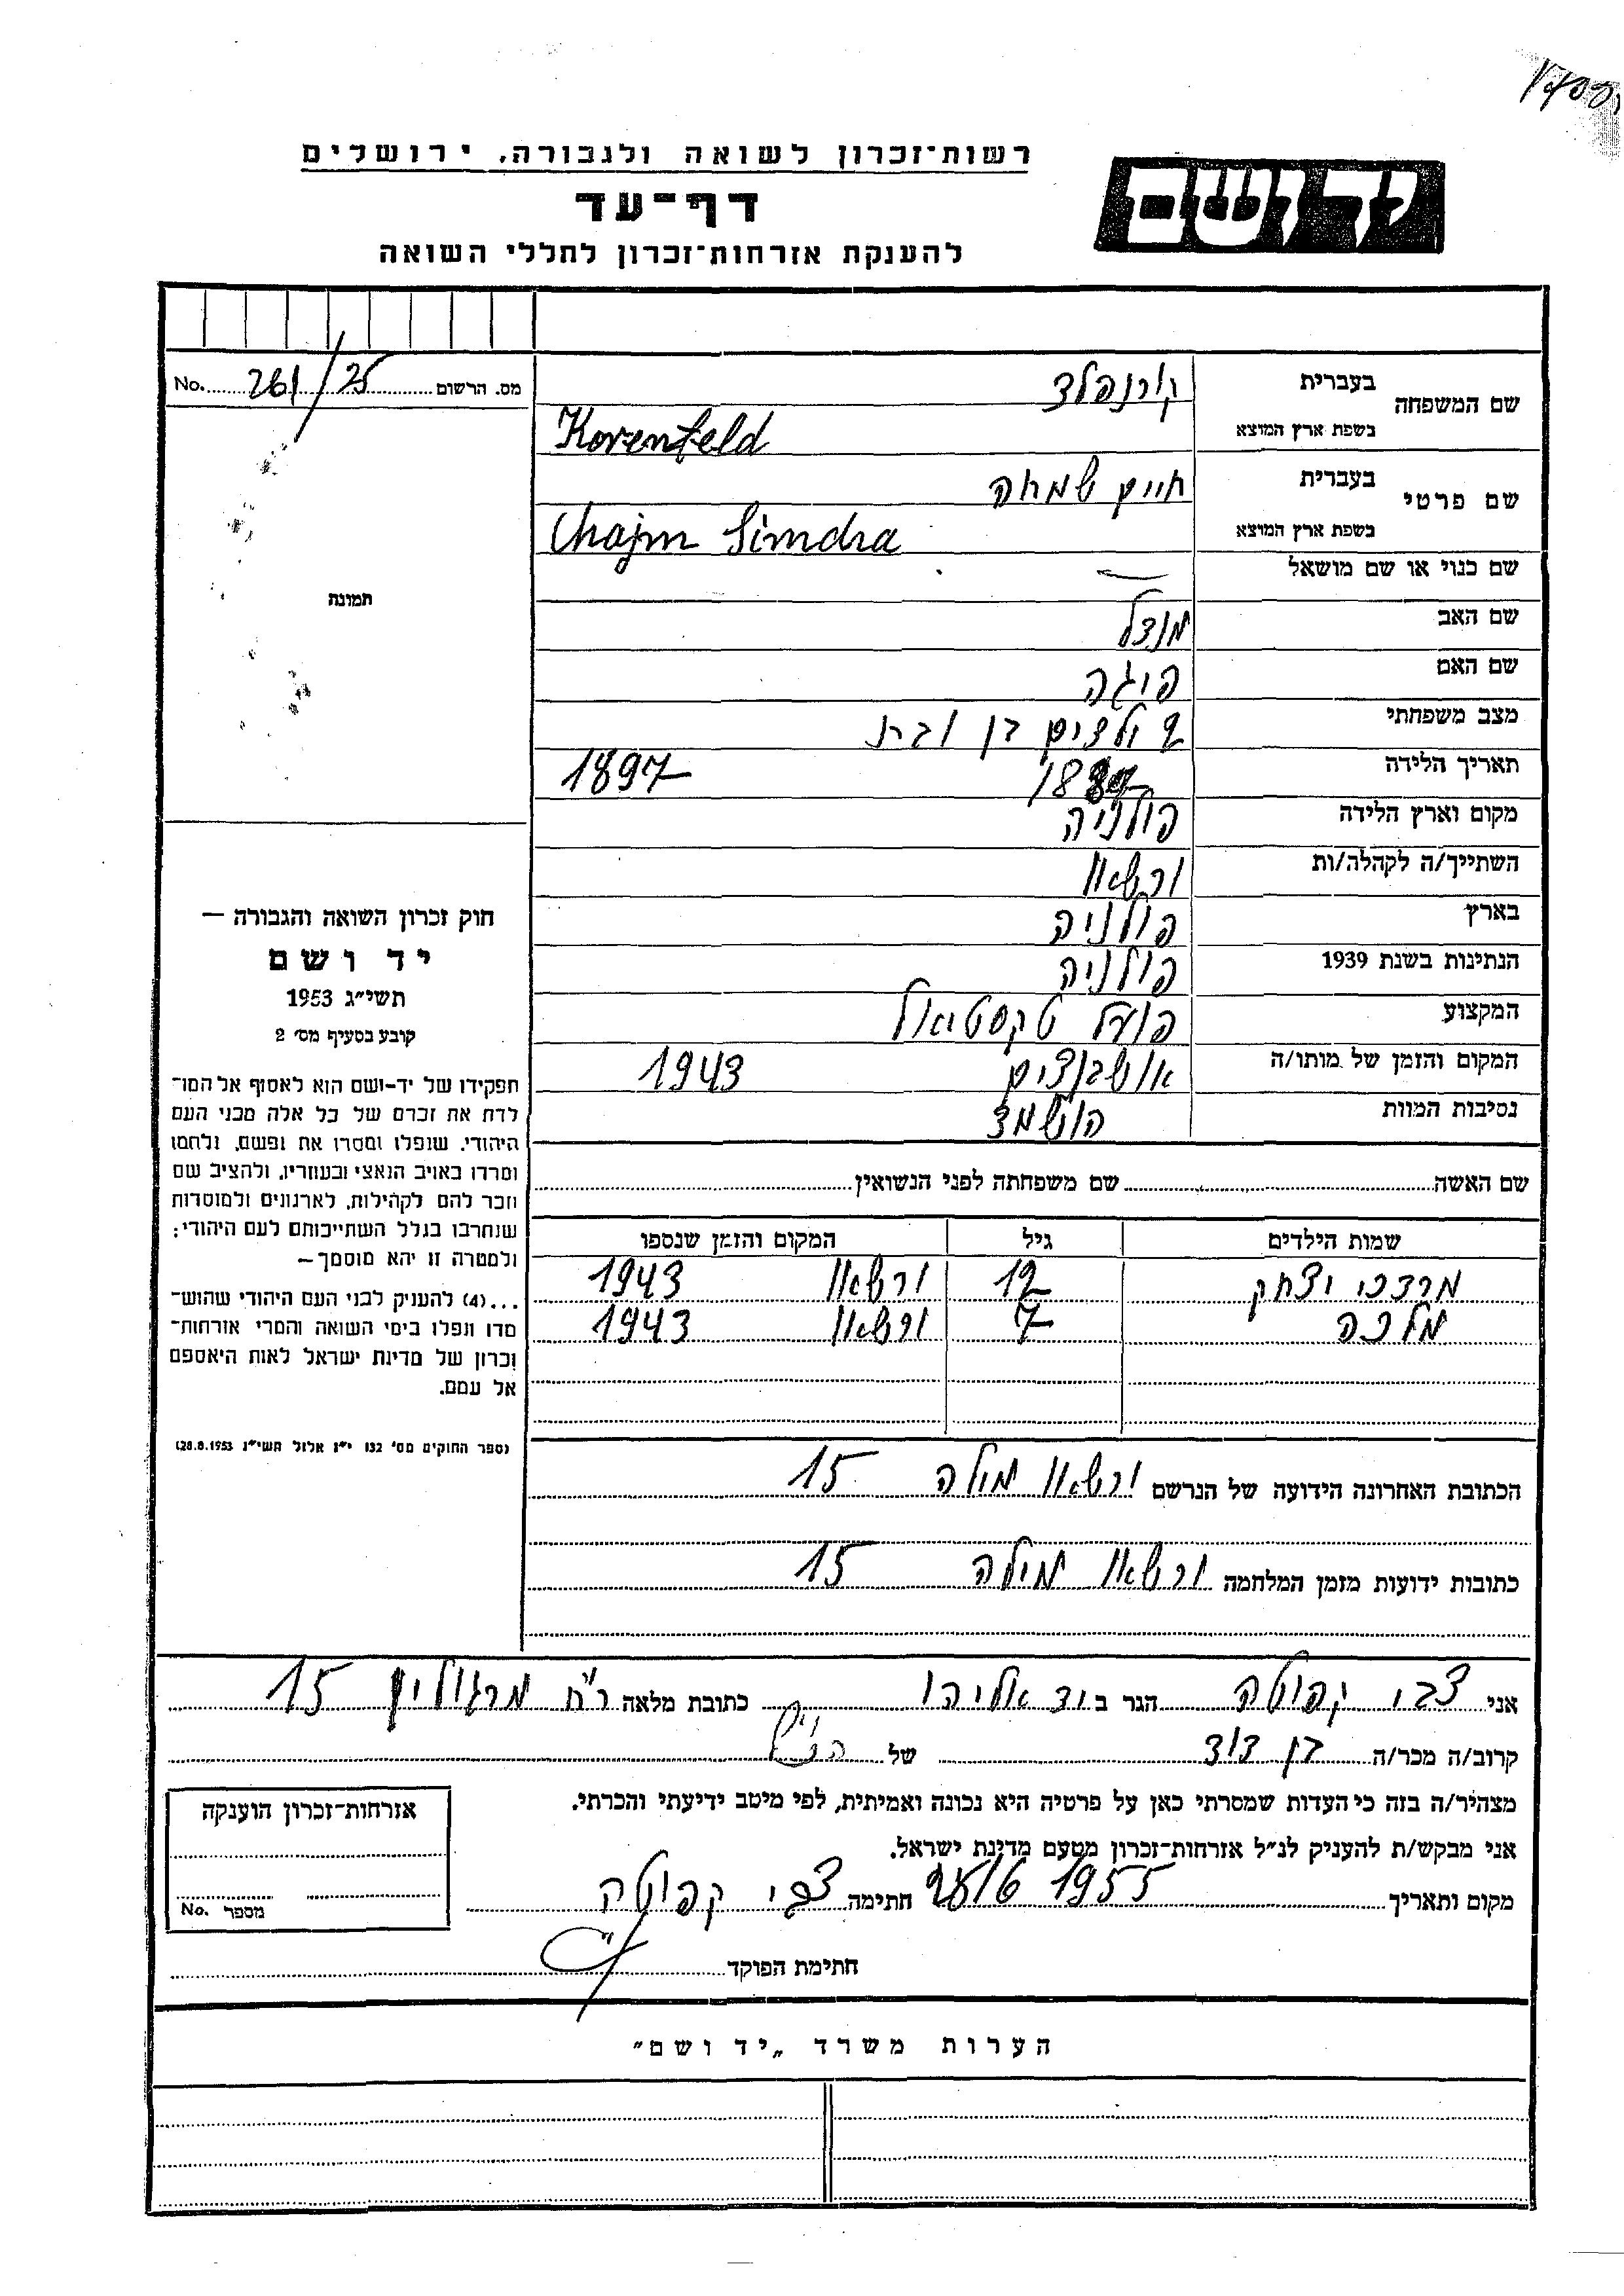 רשות־זכרון לשואה ולגבורה, ירושלים
יד ושם
דף־עד
להענקת אזרחות־זכרון לחללי השואה
מס. הרשום 261/25 No.
תמונה
שם המשפחה בעברית קורנפלד
בשפת ארץ המוצא Korenfeld
שם פרטי בעברית חיים שמחה
בשפת ארץ המוצא Chajm Simcha
שם כנוי או שם מושאל —
שם האב מנדל
שם האם פיגה
מצב משפחתי 2 ילדים בן ובת
תאריך הלידה 1897
מקום וארץ הלידה פולניה
השתייך/ה לקהלה/ות ורשאו
בארץ פולניה
הנתינות בשנת 1939 פולניה
המקצוע פועל טקסטיאל
המקום והזמן של מותו/ה אושבנצים 1943
נסיבות המוות הושמד
חוק זכרון השואה והגבורה —
יד ושם
תשי״ג 1953
קובע בסעיף מס׳ 2
תפקידו של יד־ושם הוא לאסוף אל המו־
לדת את זכרם של כל אלה מבני העם
היהודי, שנפלו ומסרו את נפשם, נלחמו
ומרדו באויב הנאצי ובעוזריו, ולהציב שם
וזכר להם לקהילות, לארגונים ולמוסדות
שנחרבו בגלל השתייכותם לעם היהודי;
ולמטרה זו יהא מוסמך—
...(4) להעניק לבני העם היהודי שהוש־
מדו ונפלו בימי השואה והמרי אזרחות־
זכרון של מדינת ישראל לאות היאספם
אל עמם.
(ספר החוקים מס׳ 132 י״ז אלול תשי״ג 28.8.1953)
שם האשה שם משפחתה לפני הנשואין
שמות הילדים גיל המקום והזמן שנספו
מרדכי יצחק 12 ורשאו 1943
מלכה 7 ורשאו 1943
הכתובת האחרונה הידועה של הנרשם ורשאו מילה 15
כתובות ידועות מזמן המלחמה ורשאו מילה 15
אני צבי קפוטה הגר ב יד אליהו כתובת מלאה רח מרגולין 15
קרוב/ה מכר/ה בן דוד של
מצהיר/ה בזה כי העדות שמסרתי כאן על פרטיה היא נכונה ואמיתית, לפי מיטב ידיעתי והכרתי.
אני מבקש/ת להעניק לנ״ל אזרחות־זכרון מטעם מדינת ישראל.
מקום ותאריך 1955 חתימה צבי קפוטה
חתימת הפוקד
אזרחות־זכרון הוענקה
מספר No.
הערות משרד „יד ושם״